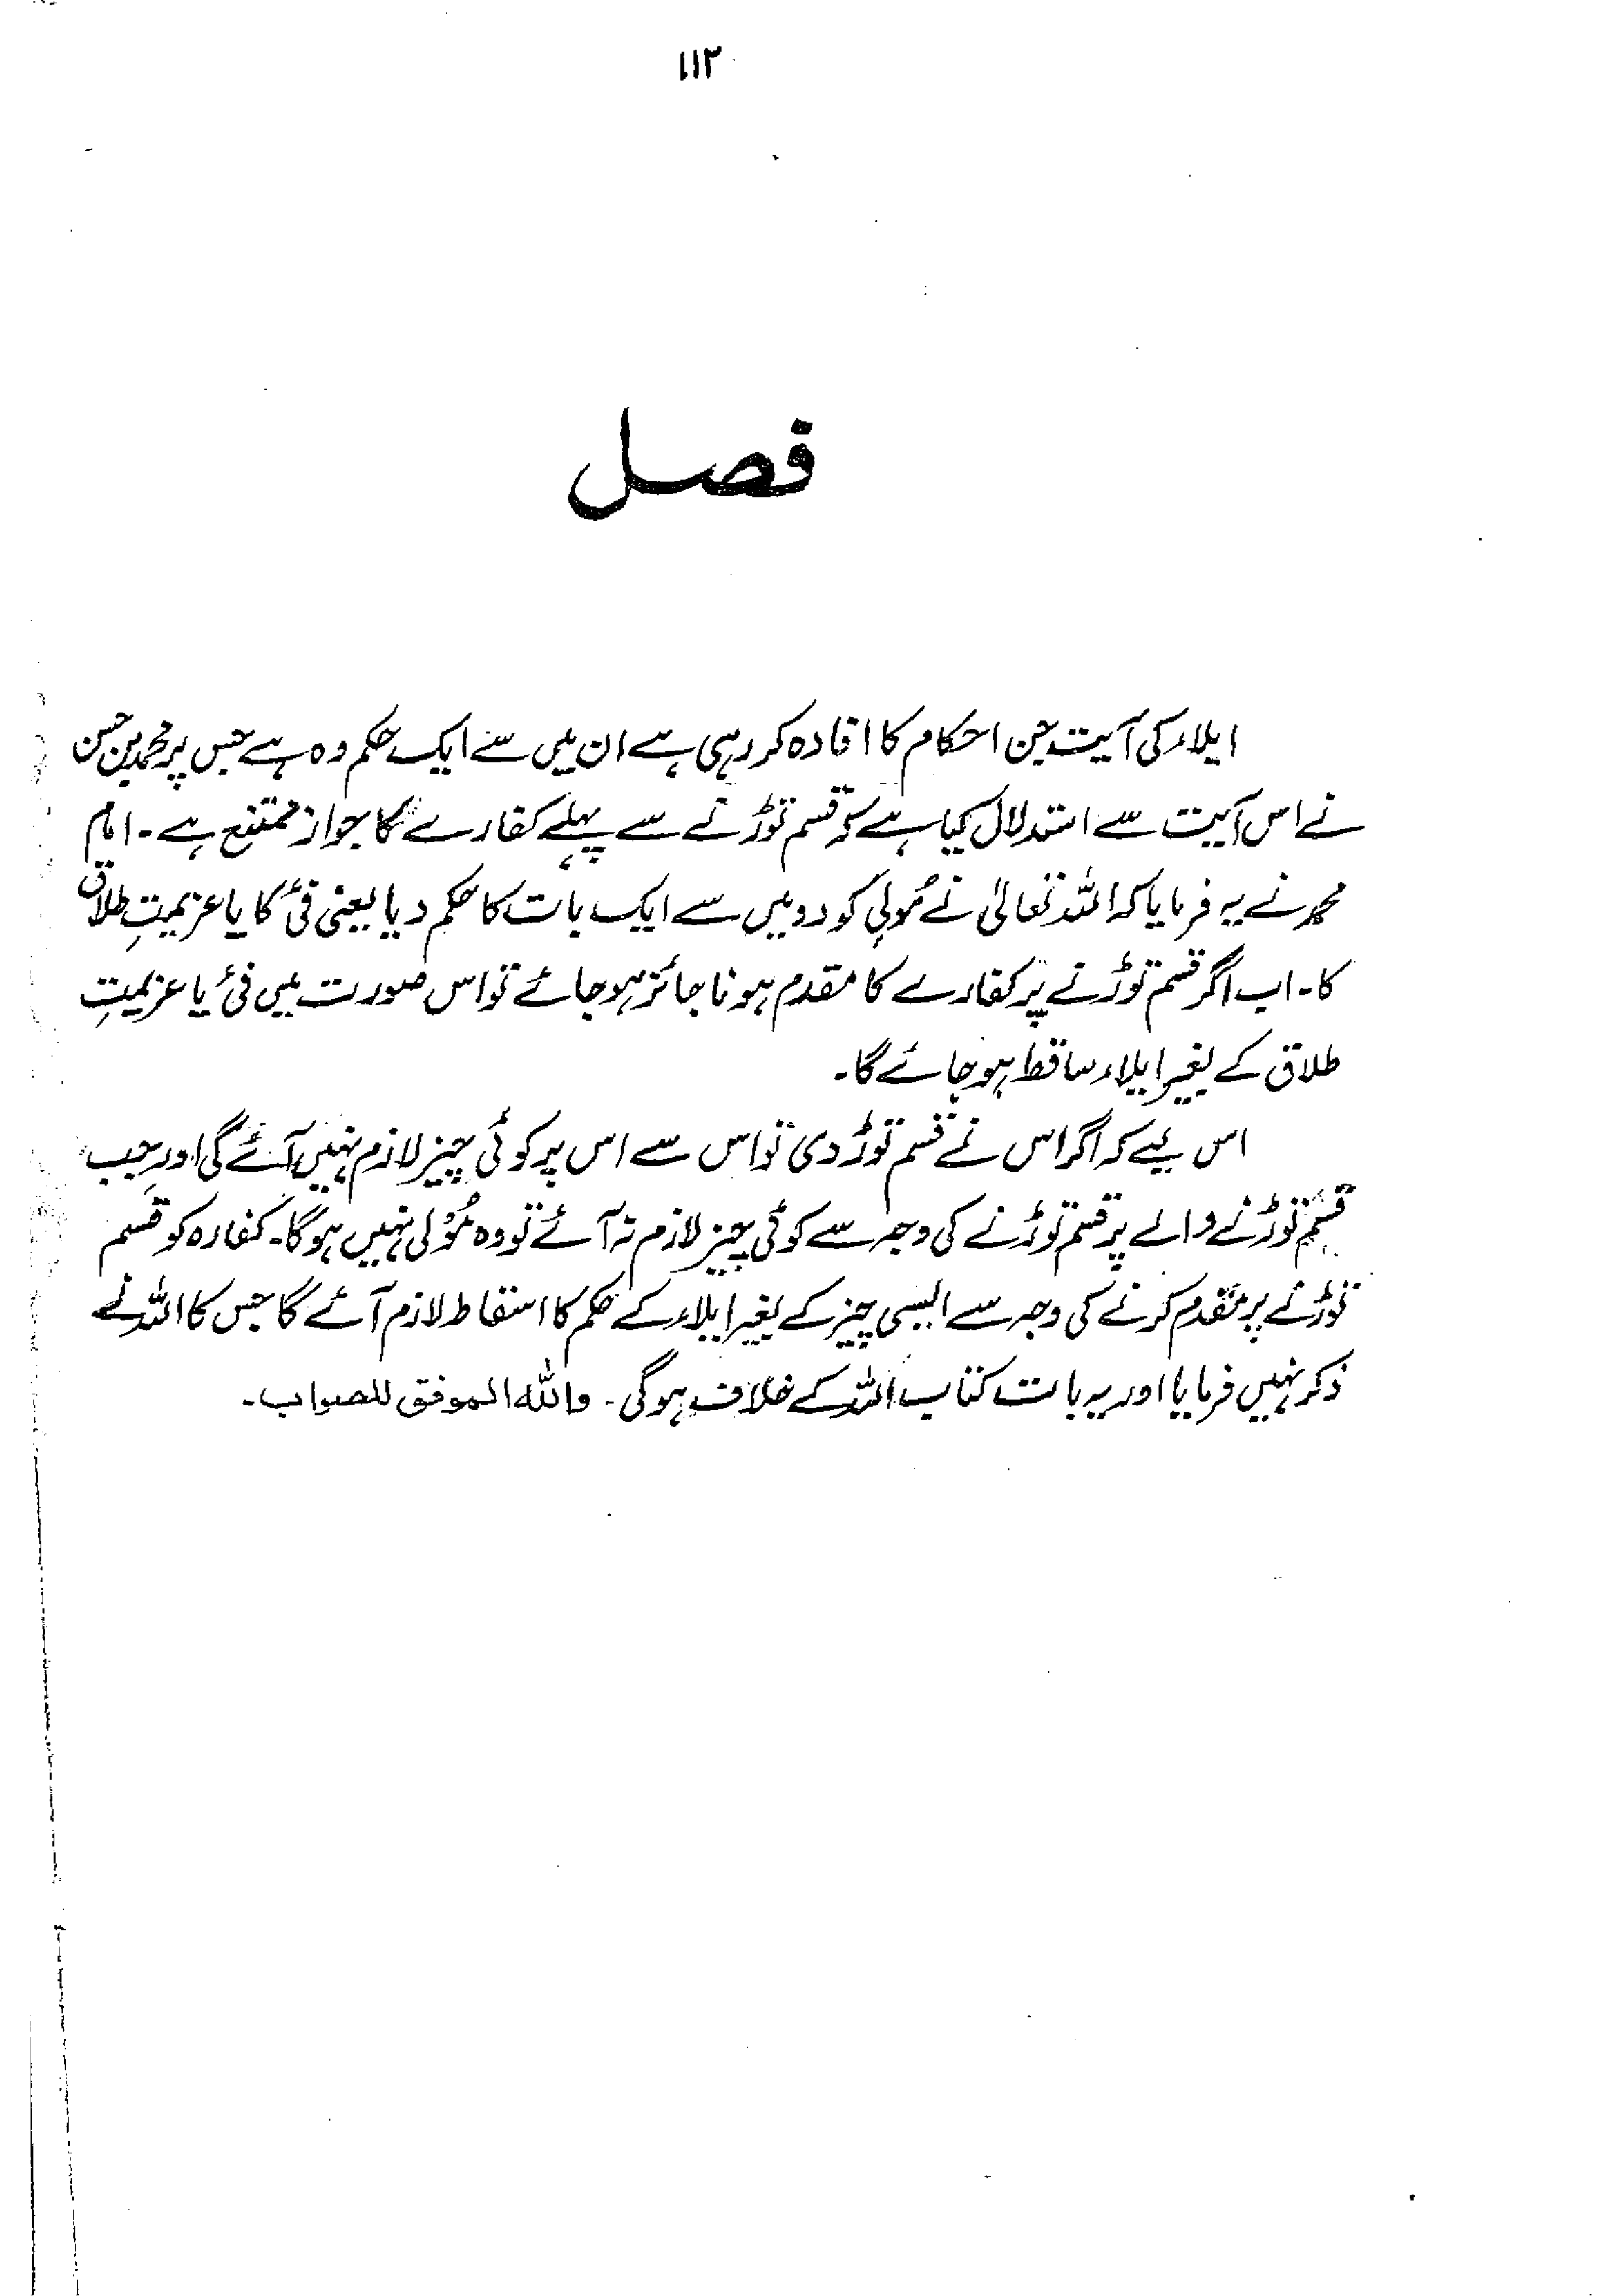 ۱۱۲
فصل
ایلاء کی آیت جن احکام کا افادہ کر رہی ہے ان میں سے ایک حکم وہ ہے جس پر محمد بن حسن
نے اس آیت سے استدلال کیا ہے کہ قسم توڑنے سے پہلے کفارے کا جواز ممتنع ہے۔ امام
محمد نے یہ فرمایا کہ اللہ تعالیٰ نے مُولِی کو دو میں سے ایک بات کا حکم دیا یعنی فئ کا یا عزیمتِ طلاق
کا۔ اب اگر قسم توڑنے پر کفارے کا مقدم ہونا جائز ہو جائے تو اس صورت میں فئ یا عزیمتِ
طلاق کے بغیر ایلاء ساقط ہو جائے گا۔
اس لیے کہ اگر اس نے قسم توڑ دی تو اس سے اس پر کوئی چیز لازم نہیں آئے گی اور جب
قسم توڑنے والے پر قسم توڑنے کی وجہ سے کوئی چیز لازم نہ آئے تو وہ مُؤلی نہیں ہوگا۔ کفارہ کو قسم
توڑنے پر مقدم کرنے کی وجہ سے ایسی چیز کے بغیر ایلاء کے حکم کا اسقاط لازم آئے گا جس کا اللہ نے
ذکر نہیں فرمایا اور یہ بات کتاب اللہ کے خلاف ہوگی۔ واللہ الموفق للصواب۔